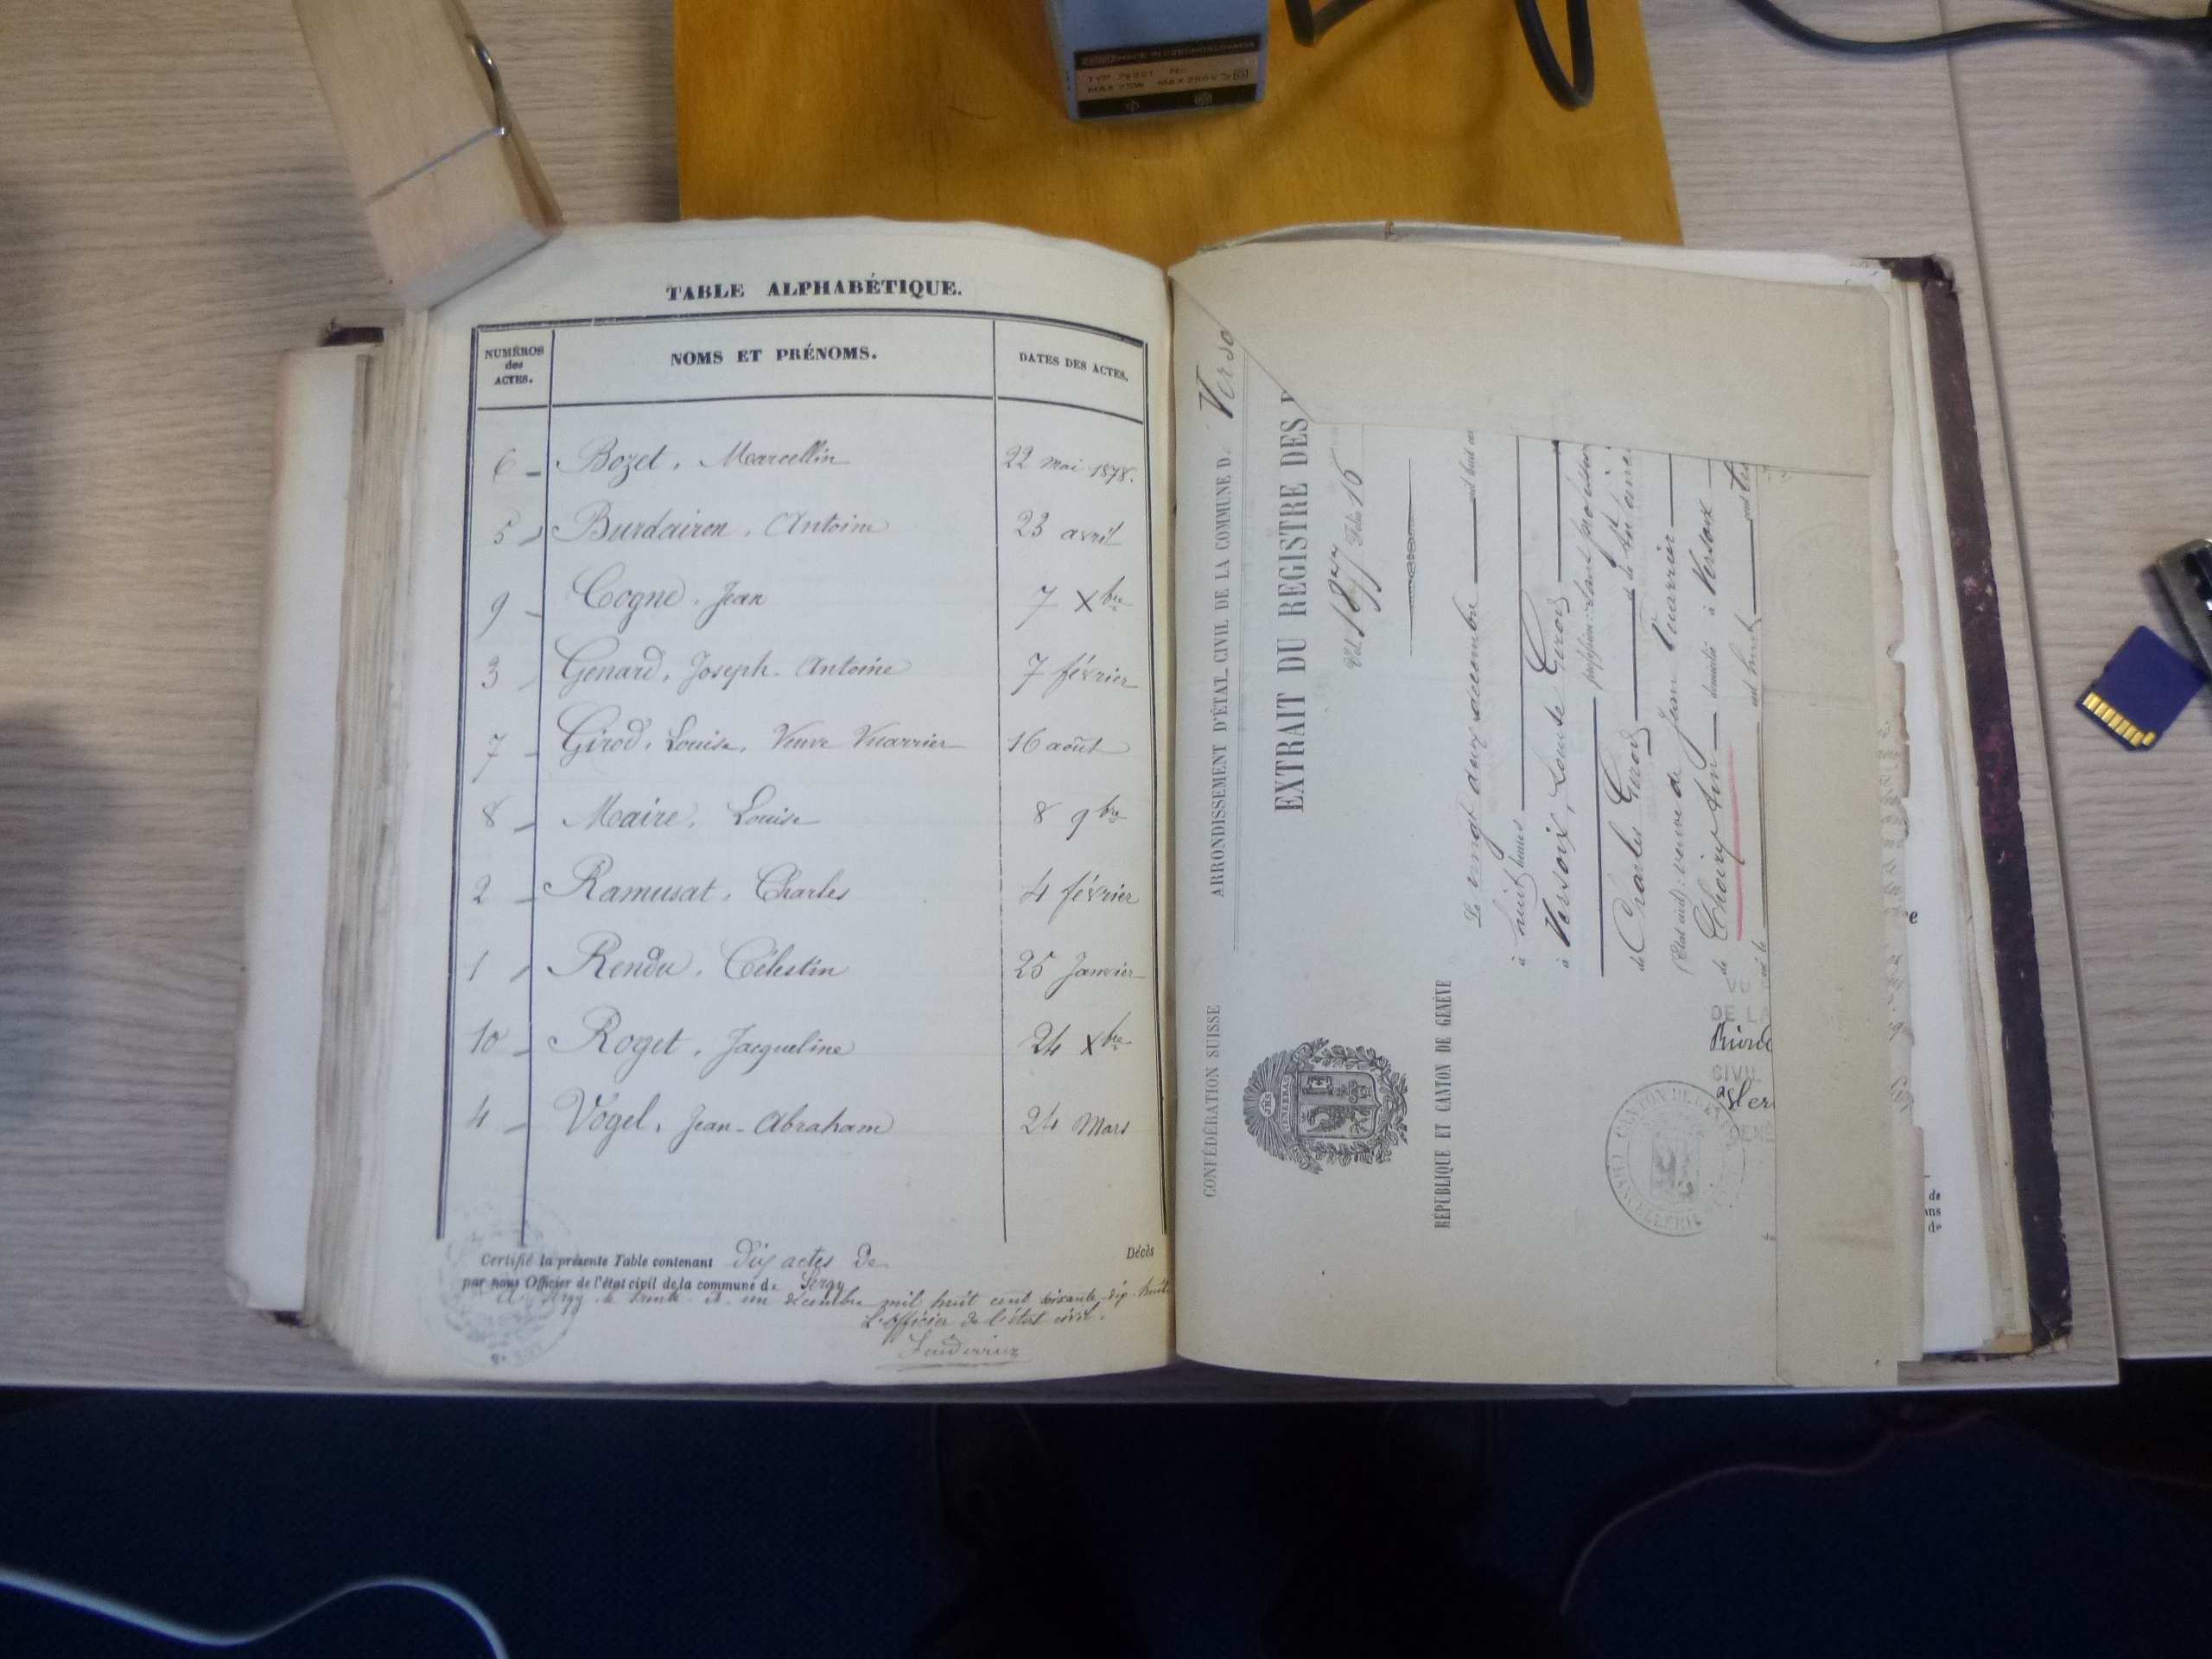 TABLE ALPHABÉTIQUE.
NUMÉROS des ACTES. NOMS ET PRÉNOMS. DATES DES ACTES.
6 - Bozet, Marcellin 22 mai 1878.
5 - Burdairon, Antoine 23 avril
9 - Cogne, Jean 7 Xbre
3 - Genard, Joseph-Antoine 7 février
7 - Girod, Louise, Veuve Vuarrier 16 août
8 - Maire, Louise 8 9bre
2 - Ramusat, Charles 4 février
1 - Rendu, Célestin 25 Janvier
10 - Roget, Jacqueline 24 Xbre
4 - Vogel, Jean-Abraham 24 Mars
Certifié la présente Table contenant dix actes de Décès
par nous Officier de l'état civil de la commune de Sergy
A Sergy le trente et un décembre mil huit cent soixante-dix-huit
L'officier de l'état civil.
CONFÉDÉRATION SUISSE
RÉPUBLIQUE ET CANTON DE GENÈVE
ARRONDISSEMENT D'ÉTAT-CIVIL DE LA COMMUNE DE Verso
EXTRAIT DU REGISTRE DES
Vol. 1877 Folio 16
Le vingt deux décembre mil huit
à huit heures
à Versoix, Louise Girod
profession: sans profession
de Charles Girod et de
(Etat civil): veuve de Jean Vuarrier
de Thoiry Ain domicilié à Versoix
né le mil huit
DE LA
CIVIL
TYP
MAX 75W MAX 250V